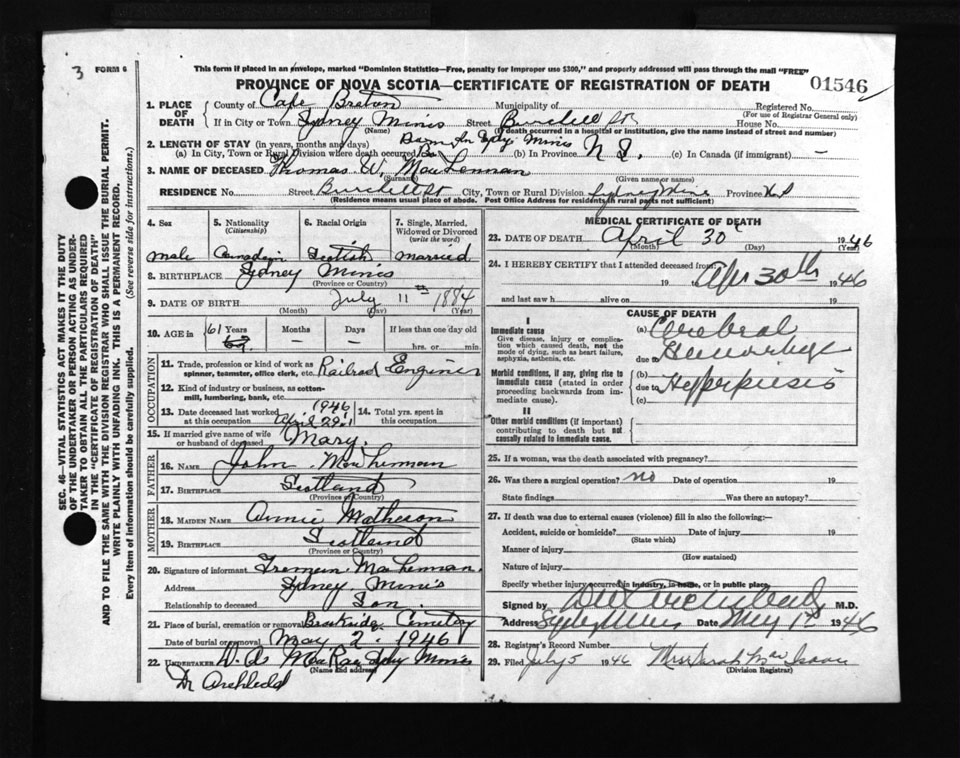 3 FORM 6
This form if placed in an envelope, marked "Dominion Statistics—Free, penalty for improper use $300," and properly addressed will pass through the mail "FREE"
PROVINCE OF NOVA SCOTIA—CERTIFICATE OF REGISTRATION OF DEATH 01546
SEC. 46—VITAL STATISTICS ACT MAKES IT THE DUTY
OF THE UNDERTAKER OR PERSON ACTING AS UNDERTAKER
TAKER TO OBTAIN ALL THE PARTICULARS REQUIRED
IN THE "CERTIFICATE OF REGISTRATION OF DEATH"
AND TO FILE THE SAME WITH THE DIVISION REGISTRAR WHO SHALL ISSUE THE BURIAL PERMIT.
WRITE PLAINLY WITH UNFADING INK. THIS IS A PERMANENT RECORD.
Every item of information should be carefully supplied. (See reverse side for instructions.)
1. PLACE OF DEATH County of Cape Breton Municipality of Registered No.
(For use of Registrar General only)
If in City or Town Sydney Mines Street Burchell St House No.
(Name) (If death occurred in a hospital or institution, give the name instead of street and number)
2. LENGTH OF STAY (in years, months and days) Born In Sydney Mines
(a) In City, Town or Rural Division where death occurred (b) In Province N S. (c) In Canada (if immigrant) —
3. NAME OF DECEASED Thomas W. MacLennan
(Surname) (Given name or names)
RESIDENCE No. Street Burchell St City, Town or Rural Division Sydney Mine Province N S
(Residence means usual place of abode. Post Office Address for residents in rural parts not sufficient)
4. Sex 5. Nationality (Citizenship) 6. Racial Origin 7. Single, Married, Widowed or Divorced (write the word)
male Canadian Scottish married
8. BIRTHPLACE Sydney Mines
(Province or Country)
9. DATE OF BIRTH July 11th 1884
(Month) (Day) (Year)
10. AGE in 61 Years Months — Days — If less than one day old
hrs. or min.
OCCUPATION
11. Trade, profession or kind of work as Railroad Engineer
spinner, teamster, office clerk, etc.
12. Kind of industry or business, as cotton-
mill, lumbering, bank, etc.
13. Date deceased last worked at this occupation 1946 April 29 14. Total yrs. spent in this occupation
15. If married give name of wife or husband of deceased Mary.
FATHER
16. NAME John MacLennan
17. BIRTHPLACE Scotland
(Province or Country)
MOTHER
18. MAIDEN NAME Annie Matheson
19. BIRTHPLACE Scotland
(Province or Country)
20. Signature of informant Freman MacLennan.
Address Sydney Mines
Relationship to deceased Son.
21. Place of burial, cremation or removal Brookside Cemetery
Date of burial or removal May 2. 1946
22. UNDERTAKER D. A MacRae Sydney Mines
(Name and address)
Dr Archibald
MEDICAL CERTIFICATE OF DEATH
23. DATE OF DEATH April 30 1946
(Month) (Day) (Year)
24. I HEREBY CERTIFY that I attended deceased from
19 to Apr 30th 1946
and last saw h alive on 19
CAUSE OF DEATH
I
Immediate cause (a) Cerebral
Give disease, injury or complication
which caused death, not the
mode of dying, such as heart failure,
asphyxia, asthenia, etc. due to Hemorrhage
Morbid conditions, if any, giving rise to (b)
immediate cause (stated in order due to
proceeding backwards from immediate cause). (c)
II
Other morbid conditions (if important)
contributing to death but not
causally related to immediate cause.
25. If a woman, was the death associated with pregnancy?
26. Was there a surgical operation? no Date of operation 19
State findings Was there an autopsy?
27. If death was due to external causes (violence) fill in also the following:—
Accident, suicide or homicide? Date of injury 19
(State which)
Manner of injury
(How sustained)
Nature of injury
Specify whether injury occurred in industry, in home, or in public place.
Signed by M.D.
Address Sydney Mines Date May 1st 1946
28. Registrar's Record Number
29. Filed July 5 1946 Mrs Sarah MacIsaac
(Division Registrar)